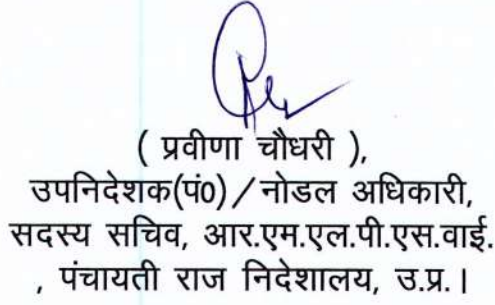 ( प्रवीणा चौधरी ),
उपनिदेशक(पं0) / नोडल अधिकारी,
सदस्य सचिव, आर.एम.एल.पी.एस.वाई.
, पंचायती राज निदेशालय, उ.प्र.।